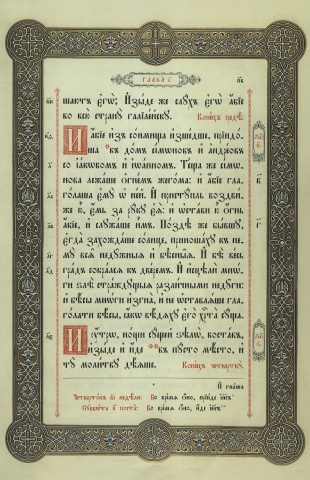 Глава а҃.
шаютъ є҆гѡ̀. И҆зы́де же слꙋ́хъ є҆гѡ̀ а҆́бїе
во всю̀ странꙋ̀ галїле́йскꙋ. Коне́цъ средѣ̀.
И҆ а҆́бїе и҆зъ со́нмища и҆зше́дше, прїидо́-
ша въ до́мъ сі́мѡновъ и҆ а҆ндре́овъ
со і҆а́кѡвомъ и҆ і҆ѡа́нномъ. Те́ща же сі́мѡ-
нова лежа́ше ѻ҆гне́мъ жего́ма: и҆ а҆́бїе гла-
го́лаша є҆мꙋ̀ ѡ҆ не́й. И҆ пристꙋ́пль воздви́-
же ю҆̀, є҆́мь за рꙋ́кꙋ є҆ѧ̀: и҆ ѡ҆ста́ви ю҆̀ ѻ҆́гнь
а҆́бїе, и҆ слꙋжа́ше и҆̀мъ. По́здѣ же бы́вшꙋ,
є҆гда̀ захожда́ше со́лнце, приноша́хꙋ къ не-
мꙋ̀ всѧ̑ недꙋ́жныѧ и҆ бѣ̑сныѧ. И҆ бѣ̀ ве́сь
гра́дъ собра́лсѧ къ две́ремъ. И҆ и҆сцѣлѝ мнѡ́-
ги ѕлѣ̀ стра́ждꙋщыѧ разли́чными недꙋ̑ги:
и҆ бѣ́сы мнѡ́ги и҆згна̀, и҆ не ѡ҆ставлѧ́ше гла-
го́лати бѣ́сы, ꙗ҆́кѡ вѣ́дѧхꙋ є҆го̀ хрⷭ҇та̀ сꙋ́ща.
И҆ ᲂу҆́трѡ, но́щи сꙋ́щей ѕѣлѡ̀, воста́въ
и҆зы́де и҆ и҆́де въ пꙋ́сто мѣ́сто, и҆
тꙋ̀ моли́твꙋ дѣ́ѧше. Коне́цъ четверткꙋ̀.
И҆ гна́ша
во вре́мѧ ѻ҆́но, прїи́де і҆и҃съ
во вре́мѧ ѻ҆́но, и҆́де і҆и҃съ